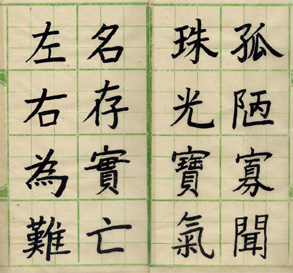 孤陋寡聞
珠光寶氣
名存實亡
左右為難